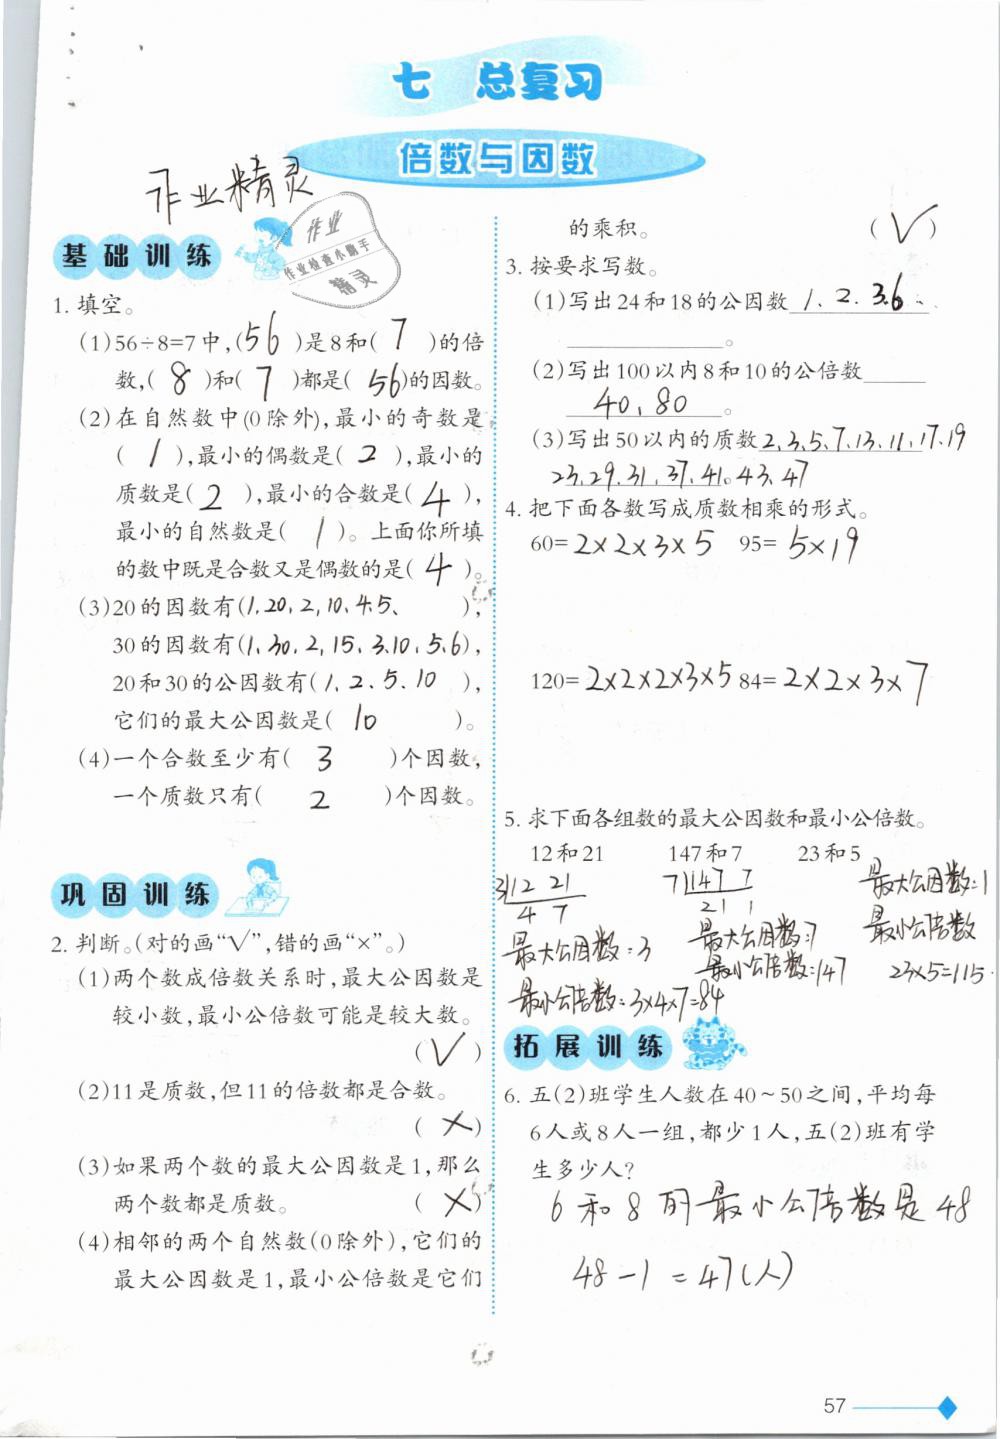 七 总复习
倍数与因数
作业精灵
作业
作业检查小助手
精灵
基础训练
1. 填空。
(1)56÷8=7中,(56)是8和(7)的倍
数,(8)和(7)都是(56)的因数。
(2)在自然数中(0除外),最小的奇数是
(1),最小的偶数是(2),最小的
质数是(2),最小的合数是(4),
最小的自然数是(1)。上面你所填
的数中既是合数又是偶数的是(4)。
(3)20的因数有(1、20、2、10、4、5、),
30的因数有(1、30、2、15、3、10、5、6),
20和30的公因数有(1、2、5、10),
它们的最大公因数是(10)。
(4)一个合数至少有(3)个因数,
一个质数只有(2)个因数。
巩固训练
2. 判断。(对的画“√”,错的画“×”。)
(1)两个数成倍数关系时,最大公因数是
较小数,最小公倍数可能是较大数。
(√)
(2)11是质数,但11的倍数都是合数。
(×)
(3)如果两个数的最大公因数是1,那么
两个数都是质数。(×)
(4)相邻的两个自然数(0除外),它们的
最大公因数是1,最小公倍数是它们
的乘积。(√)
3. 按要求写数。
(1)写出24和18的公因数1、2、3、6
。
(2)写出100以内8和10的公倍数
40、80。
(3)写出50以内的质数2、3、5、7、13、11、17、19
23、29、31、37、41。43、47
4. 把下面各数写成质数相乘的形式。
60=2×2×3×5 95=5×19
120=2×2×2×3×5 84=2×2×3×7
5. 求下面各组数的最大公因数和最小公倍数。
12和21 147和7 23和5
3 12 21 7 147 7 最大公因数=1
4 7 21 1 最小公倍数
最大公因数:3 最大公因数:7 23×5=115
最小公倍数:3×4×7=84 最小公倍数:147
拓展训练
6. 五(2)班学生人数在40~50之间,平均每
6人或8人一组,都少1人,五(2)班有学
生多少人?
6和8的最小公倍数是48
48-1=47(人)
57